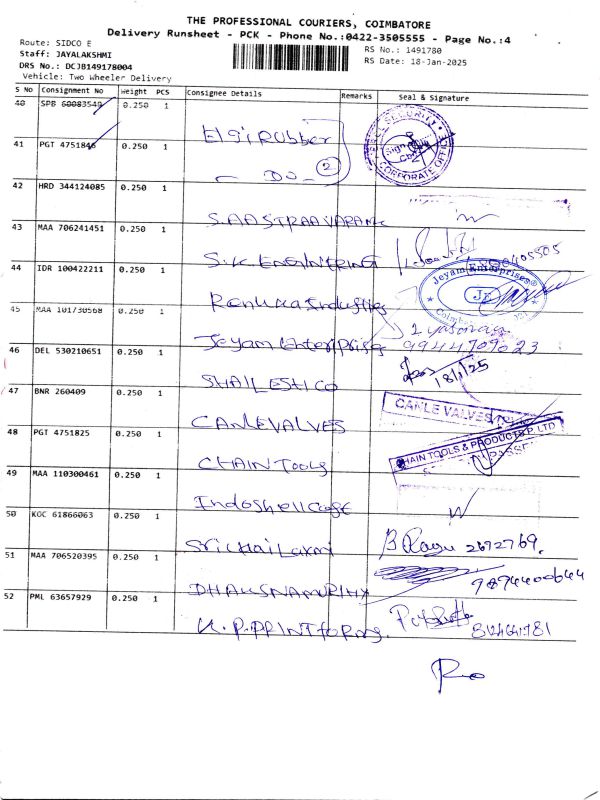 THE PROFESSIONAL COURIERS, COIMBATORE
Delivery Runsheet - PCK - Phone No.:0422-3505555 - Page No.:4
Route: SIDCO E
RS No.: 1491780
Staff: JAYALAKSHMI
RS Date: 18-Jan-2025
DRS No.: DCJB149178004
Vehicle: Two Wheeler Delivery
S No Consignment No Weight PCS Consignee Details Remarks Seal & Signature
40 SPB 60083549 0.250 1 Elgi Rubber
SECURITY
CORPORATE OFFICE
41 PGT 4751846 0.250 1 — Do — 2
42 HRD 344124085 0.250 1
43 MAA 706241451 0.250 1 S.K. ENGINEERING
44 IDR 100422211 0.250 1 Renuka Industries
Jeyam Enterprises
JE
45 MAA 101730568 0.250 1 Jeyam Enterprises
9944709023
46 DEL 530210651 0.250 1 SHAILESH CO
18/1/25
47 BNR 260409 0.250 1 CANLE VALVES
CANLE VALVES
48 PGT 4751825 0.250 1 CHAIN TOOLS
CHAIN TOOLS & PRODUCTS P LTD
49 MAA 110300461 0.250 1 Indoshell Cast
50 KGC 61866063 0.250 1
B Ragu 2672769.
51 MAA 706520395 0.250 1
9874400644
52 PML 63657929 0.250 1 K.P. PRINT forms